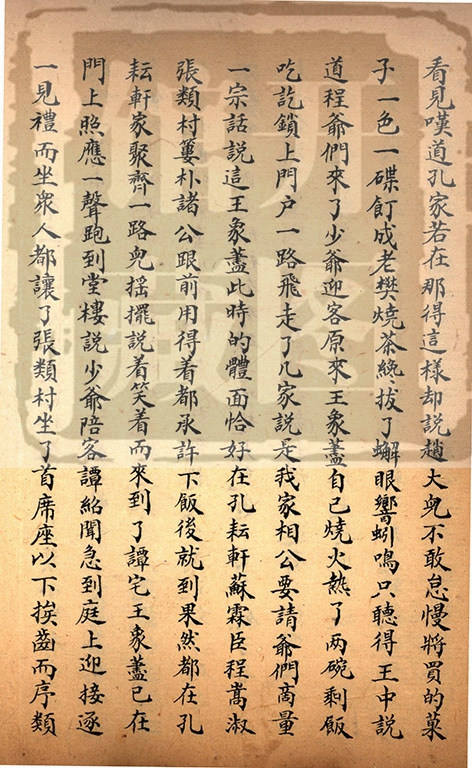 看見嘆道孔家若在那得這樣却說趙大兒不敢怠慢將買的菓
子一色一碟飣成老樊燒茶纔拔了蠏眼響蚓鳴只聽得王中說
道程爺們來了少爺迎客原來王象藎自己燒火熱了两碗剩飯
吃訖鎖上門户一路飛走了几家說是我家相公要請爺們啇量
一宗話說這王象藎此時的體面恰好在孔耘軒蘇霖臣程嵩淑
張類村婁朴諸公跟前用得着都承許下飯後就到果然都在孔
耘軒家聚齊一路兒摇擺說着笑着而來到了譚宅王象藎已在
門上照應一聲跑到堂樓說少爺陪客譚紹聞急到庭上迎接逐
一見禮而坐衆人都讓了張類村坐了首席座以下挨齒而序類